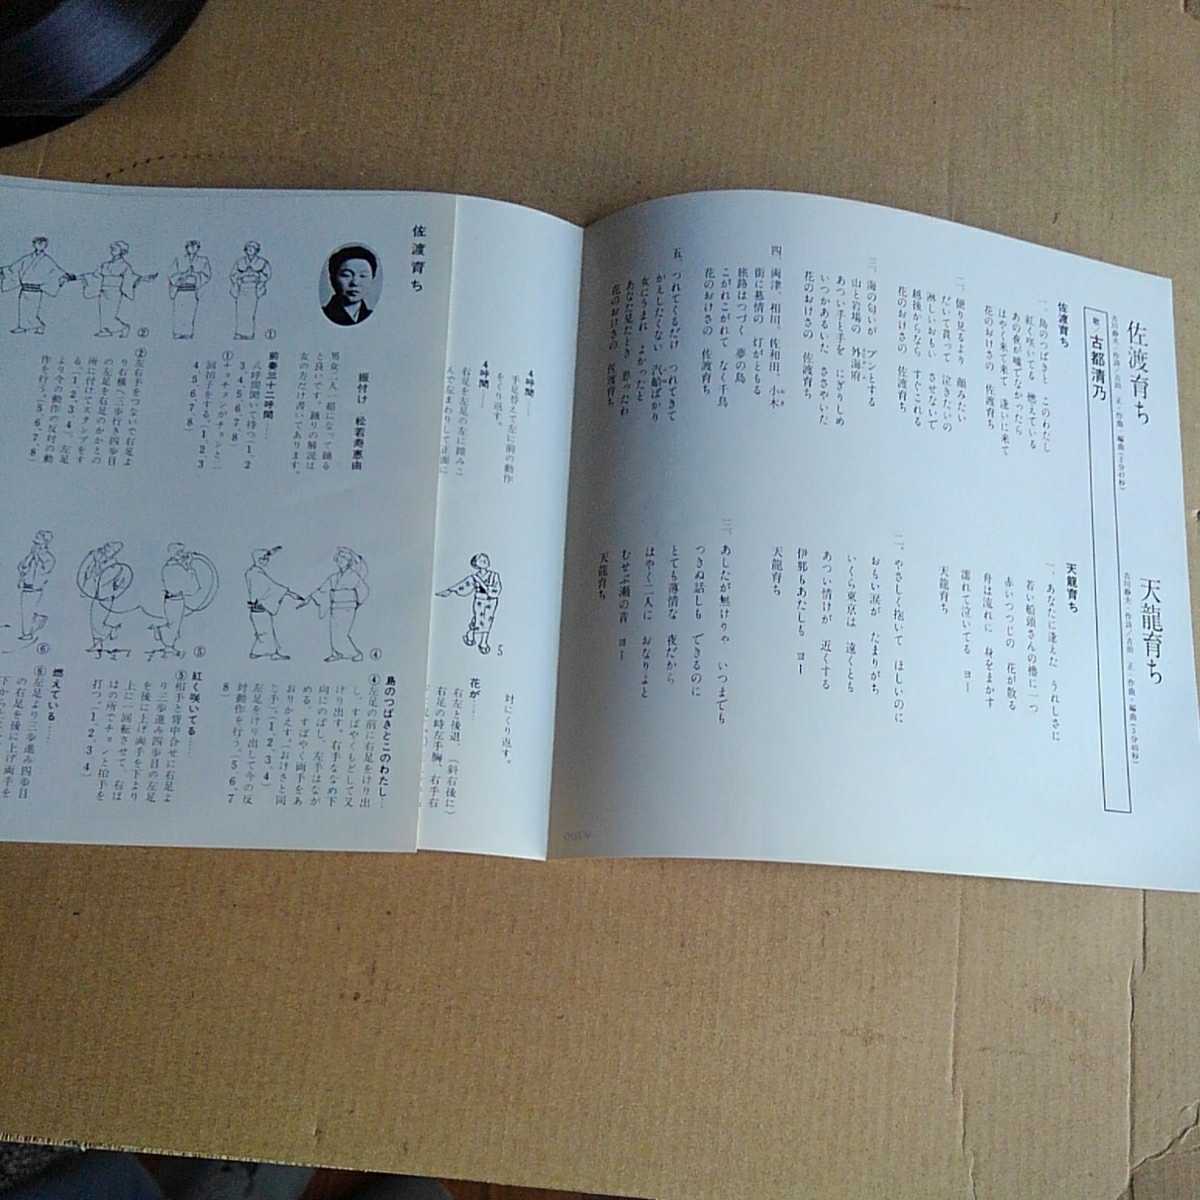 佐渡育ち
吉川静夫・作詩/吉田 正・作曲・編曲(3分41秒)
天龍育ち
吉川静夫・作詩/吉田 正・作曲・編曲
歌/古都清乃
佐渡育ち
一、島のつばきと このわたし
紅く咲いてる 燃えている
あの夜が嘘でなかったら
はやく来て来て 逢いに来て
花のおけさの 佐渡育ち
二、便り見るより 顔みたい
だいて貰って 泣きたいの
淋しいおもい させないで
越後からなら すぐこれる
花のおけさの 佐渡育ち
三、海の匂いが プンとする
山と岩場の 外海府
あつい手と手を にぎりしめ
いつかあるいた ささやいた
花のおけさの 佐渡育ち
四、両津、相川、佐和田、小木
街に慕情の 灯がともる
旅路はつづく 夢の島
こがれこがれて なく千鳥
花のおけさの 佐渡育ち
五、つれてくるだけ つれてきて
かえしたくない 汽船ばかり
女にうまれ よかったと
あなた見たとき 思ったわ
花のおけさの 佐渡育ち
天龍育ち
一、あなたに逢えた うれしさに
若い船頭さんの 橹に一つ
赤いつつじの 花が散る
舟は流れに 身をまかす
濡れて泣いてる ヨー
天龍育ち
二、やさしく抱いて ほしいのに
おもい涙が たまりがち
いくら東京は 遠くとも
あつい情けが 近くする
伊那もあたしも ヨー
天龍育ち
三、あしたが無けりゃ いつまでも
つきぬ話しも できるのに
とても薄情な 夜だから
はやく二人に おなりよと
むせぶ瀬の音 ヨー
天龍育ち
4呼間……
手足替えて左に前の動作
をくり返す。
4呼間……
右足を左足の左に踏みこ
んで左まわりして正面に
対にくり返す。
花が……
右左と後退、(斜右後に)
右足の時左手胸、右手右
5
佐渡育ち
振付け 松若寿恵由
男女二人一組になって踊る
と良いです。踊りの解説は
女の方だけ書いてあります。
前奏三十二呼間……
八呼間聞いて待つ(1、2
3、4、5、6、7、8)
①チョチョンがチョンと二
回拍手をする。(1、2、3
4、5、6、7、8)
②左右手をつないで右足よ
り右横へ三歩行き四歩目
の左足を右足のかかとの
所に付けてスタンプをす
る(1、2、3、4)左足
より今の動作の反対の動
作を行う。(5、6、7、8)
①
②
島のつばきとこのわたし…
④左足の前に右足をけり出
し、すばやくもどして又
けり出す。右手ななめ下
向にのばし、左手はなが
める。すばやく両手をあ
おりかえす。(おけさと同
じ手)。(1、2、3、4)
左足をけり出して今の反
対動作を行う。(5、6、7
8)
紅く咲いてる……
⑤相手と背中合せに右足よ
り三歩進み四歩目の左足
を後に上げ両手を下より
上に一回転させて、右ば
はの所でチョンと拍手を
打つ。(1、2、3、4)
燃えている……
⑥左足より三歩進み四歩目
の右足を後に上げ両手を
④
⑤
⑥